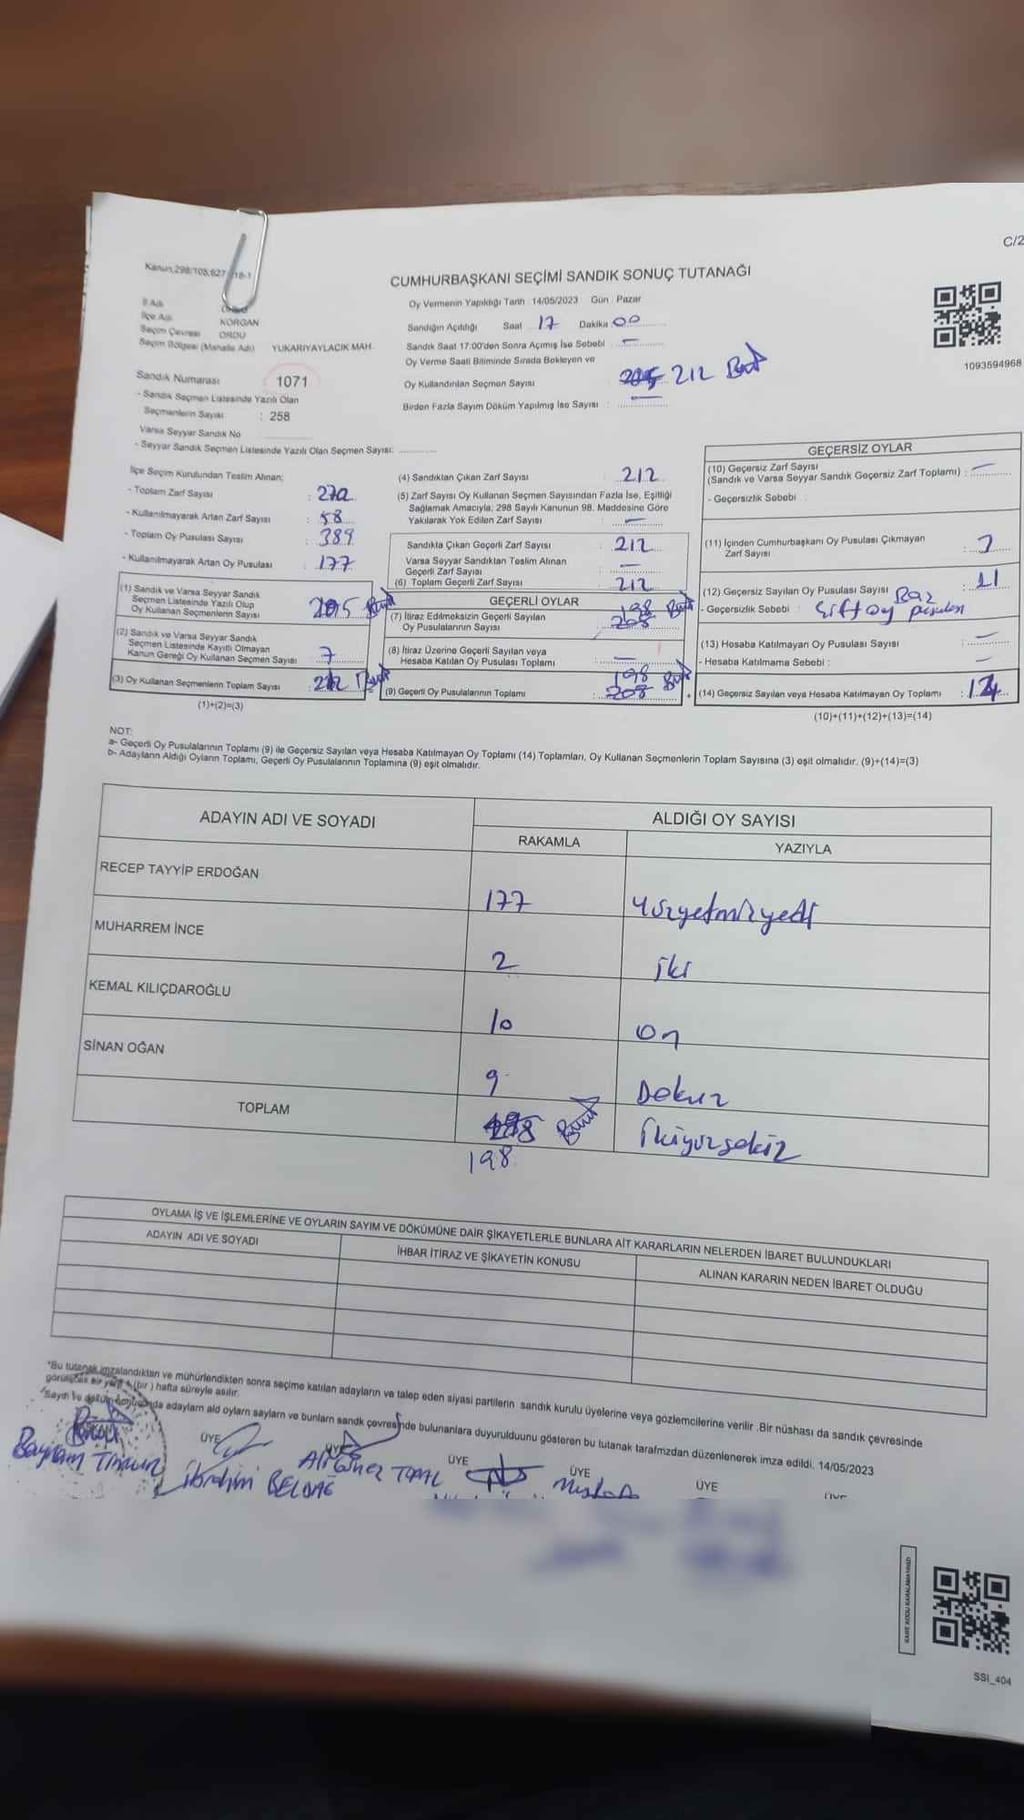 C/2
Kanun,298/105,627
CUMHURBAŞKANI SEÇİMİ SANDIK SONUÇ TUTANAĞI
Oy Vermenin Yapıldığı Tarih : 14/05/2023 Gün : Pazar
İli Adı
İlçe Adı : KORGAN
Seçim Çevresi : ORDU
Seçim Bölgesi (Mahalle Adı) : YUKARIYAYLACIK MAH.
Sandığın Açıldığı Saat 17 Dakika 00
Sandık Saat 17:00'den Sonra Açmış İse Sebebi : —
Oy Verme Saati Bitiminde Sırada Bekleyen ve
Oy Kullandırılan Seçmen Sayısı 212
Birden Fazla Sayım Döküm Yapılmış İse Sayısı : —
1093594968
Sandık Numarası : 1071
- Sandık Seçmen Listesinde Yazılı Olan
Seçmenlerin Sayısı : 258
Varsa Seyyar Sandık No
- Seyyar Sandık Seçmen Listesinde Yazılı Olan Seçmen Sayısı:
İlçe Seçim Kurulundan Teslim Alınan;
- Toplam Zarf Sayısı :
- Kullanılmayarak Artan Zarf Sayısı : 58
- Toplam Oy Pusulası Sayısı : 389
- Kullanılmayarak Artan Oy Pusulası : 177
(1) Sandık ve Varsa Seyyar Sandık
Seçmen Listesinde Yazılı Olup
Oy Kullanan Seçmenlerin Sayısı : 205
(2) Sandık ve Varsa Seyyar Sandık
Seçmen Listesinde Kayıtlı Olmayan
Kanun Gereği Oy Kullanan Seçmen Sayısı : 7
(3) Oy Kullanan Seçmenlerin Toplam Sayısı : 212
(1)+(2)=(3)
(4) Sandıktan Çıkan Zarf Sayısı : 212
(5) Zarf Sayısı Oy Kullanan Seçmen Sayısından Fazla İse, Eşitliği
Sağlamak Amacıyla, 298 Sayılı Kanunun 98. Maddesine Göre
Yakılarak Yok Edilen Zarf Sayısı : —
Sandıkta Çıkan Geçerli Zarf Sayısı : 212
Varsa Seyyar Sandıktan Teslim Alınan
Geçerli Zarf Sayısı : —
(6) Toplam Geçerli Zarf Sayısı : 212
GEÇERLİ OYLAR
(7) İtiraz Edilmeksizin Geçerli Sayılan
Oy Pusulalarının Sayısı : 198 208
(8) İtiraz Üzerine Geçerli Sayılan veya
Hesaba Katılan Oy Pusulası Toplamı : —
(9) Geçerli Oy Pusulalarının Toplamı : 198 208
GEÇERSİZ OYLAR
(10) Geçersiz Zarf Sayısı
(Sandık ve Varsa Seyyar Sandık Geçersiz Zarf Toplamı) : —
- Geçersizlik Sebebi :
(11) İçinden Cumhurbaşkanı Oy Pusulası Çıkmayan
Zarf Sayısı :
(12) Geçersiz Sayılan Oy Pusulası Sayısı : 11
- Geçersizlik Sebebi :
(13) Hesaba Katılmayan Oy Pusulası Sayısı : —
- Hesaba Katılmama Sebebi : —
(14) Geçersiz Sayılan veya Hesaba Katılmayan Oy Toplamı :
(10)+(11)+(12)+(13)=(14)
NOT:
a- Geçerli Oy Pusulalarının Toplamı (9) ile Geçersiz Sayılan veya Hesaba Katılmayan Oy Toplamı (14) Toplamları, Oy Kullanan Seçmenlerin Toplam Sayısına (3) eşit olmalıdır. (9)+(14)=(3)
b- Adayların Aldığı Oyların Toplamı, Geçerli Oy Pusulalarının Toplamına (9) eşit olmalıdır.
ADAYIN ADI VE SOYADI
ALDIĞI OY SAYISI
RAKAMLA
YAZIYLA
RECEP TAYYİP ERDOĞAN 177 yüzyetmişyedi
MUHARREM İNCE 2 iki
KEMAL KILIÇDAROĞLU 10 on
SİNAN OĞAN 9 Dokuz
TOPLAM ikiyüzsekiz
198
OYLAMA İŞ VE İŞLEMLERİNE VE OYLARIN SAYIM VE DÖKÜMÜNE DAİR ŞİKAYETLERLE BUNLARA AİT KARARLARIN NELERDEN İBARET BULUNDUKLARI
ADAYIN ADI VE SOYADI
İHBAR İTİRAZ VE ŞİKAYETİN KONUSU
ALINAN KARARIN NEDEN İBARET OLDUĞU
*Bu tutanak imzalandıktan ve mühürlendikten sonra seçime katılan adayların ve talep eden siyasi partilerin sandık kurulu üyelerine veya gözlemcilerine verilir. Bir nüshası da sandık çevresinde
görülecek bir yere 1 (bir) hafta süreyle asılır.
adayların ald oyların sayların ve bunların sandk çevresinde bulunanlara duyurulduunu gösteren bu tutanak tarafmzdan düzenlenerek imza edildi. 14/05/2023
ÜYE
ÜYE
ÜYE
ÜYE
ÜYE
Bayram
İbrahim BELDAĞ
TOPAL
SSI_404